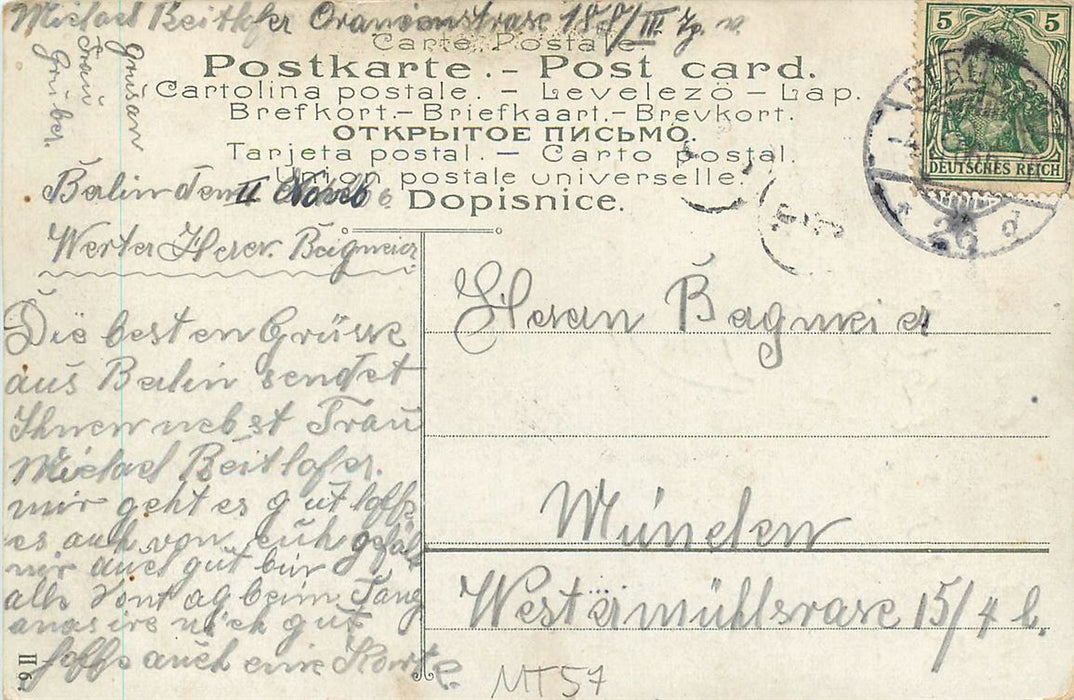 Michael Beitlhofer Oranienstrase 187/III.
grusan
Frau
Gruber.
Carte Postale
Postkarte. – Post card.
Cartolina postale. – Levelezö – Lap.
Brefkort – Briefkaart. – Brevkort.
ОТКРЫТОЕ ПИСЬМО.
Tarjeta postal. – Carto postal.
Union postale universelle.
Dopisnice.
5 5
DEUTSCHES REICH
BERLIN
Berlin dem II Novb 06.
Werter Herr. Bagmeier
Die besten Grüsse
aus Berlin sendet
Ihnen nebst Frau
Michael Beitlhofer.
mir geht es gut hoffe
es auch von euch gefäll
mir auch gut bin
alle Sontag beim Tanz
gut
hoffe auch eine Karte.
Herrn Bagmeier
München
Westermühlsrase 15/4 l.
II 6.
MT57